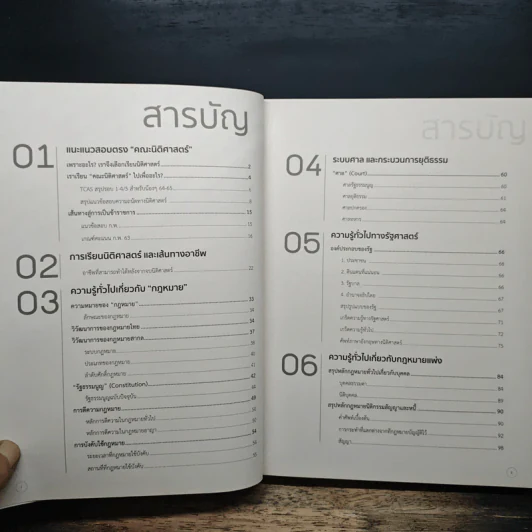 สารบัญ
01
แนะแนวสอบตรง "คณะนิติศาสตร์"
เพราะอะไร? เราจึงเลือกเรียนนิติศาสตร์ 2
เราเรียน "คณะนิติศาสตร์" ไปเพื่ออะไร? 4
TCAS สรุปรอบ 1-4/5 สำหรับน้องๆ 64-65
สรุปแนวข้อสอบความถนัดทางนิติศาสตร์
เส้นทางสู่การเป็นข้าราชการ 15
แนวข้อสอบ ก.พ.
เกณฑ์คะแนน ก.พ. 63
02
การเรียนนิติศาสตร์ และเส้นทางอาชีพ
อาชีพที่สามารถทำได้หลังจากจบนิติศาสตร์ 22
03
ความรู้ทั่วไปเกี่ยวกับ "กฎหมาย"
ความหมายของ "กฎหมาย" 33
ลักษณะของกฎหมาย
วิวัฒนาการของกฎหมายไทย 34
วิวัฒนาการของกฎหมายสากล 37
ระบบกฎหมาย 40
ประเภทของกฎหมาย
ลำดับศักดิ์กฎหมาย 41
"รัฐธรรมนูญ" (Constitution) 42
รัฐธรรมนูญฉบับปัจจุบัน 44
การตีความกฎหมาย 49
หลักการตีความในกฎหมายทั่วไป
หลักการตีความในกฎหมายอาญา
การบังคับใช้กฎหมาย 54
ระยะเวลาที่กฎหมายใช้บังคับ
สถานที่ที่กฎหมายใช้บังคับ
สารบัญ
04
ระบบศาล และกระบวนการยุติธรรม
"ศาล" (Court) 60
ศาลรัฐธรรมนูญ
ศาลยุติธรรม
ศาลปกครอง
ศาลทหาร
05
ความรู้ทั่วไปทางรัฐศาสตร์
องค์ประกอบของรัฐ 68
1. ประชาชน
2. ดินแดนที่แน่นอน
3. รัฐบาล
4. อำนาจอธิปไตย
สรุปรูปแบบของรัฐ
เกร็ดความรู้ทางรัฐศาสตร์ 71
เกร็ดความรู้ทั่วไป 72
ศัพท์ภาษาอังกฤษทางนิติศาสตร์ 75
06
ความรู้ทั่วไปเกี่ยวกับกฎหมายแพ่ง
สรุปหลักกฎหมายทั่วไปเกี่ยวกับบุคคล 84
บุคคลธรรมดา
นิติบุคคล
สรุปหลักกฎหมายนิติกรรมสัญญาและหนี้ 90
คำศัพท์เบื้องต้น
สัญญา 98